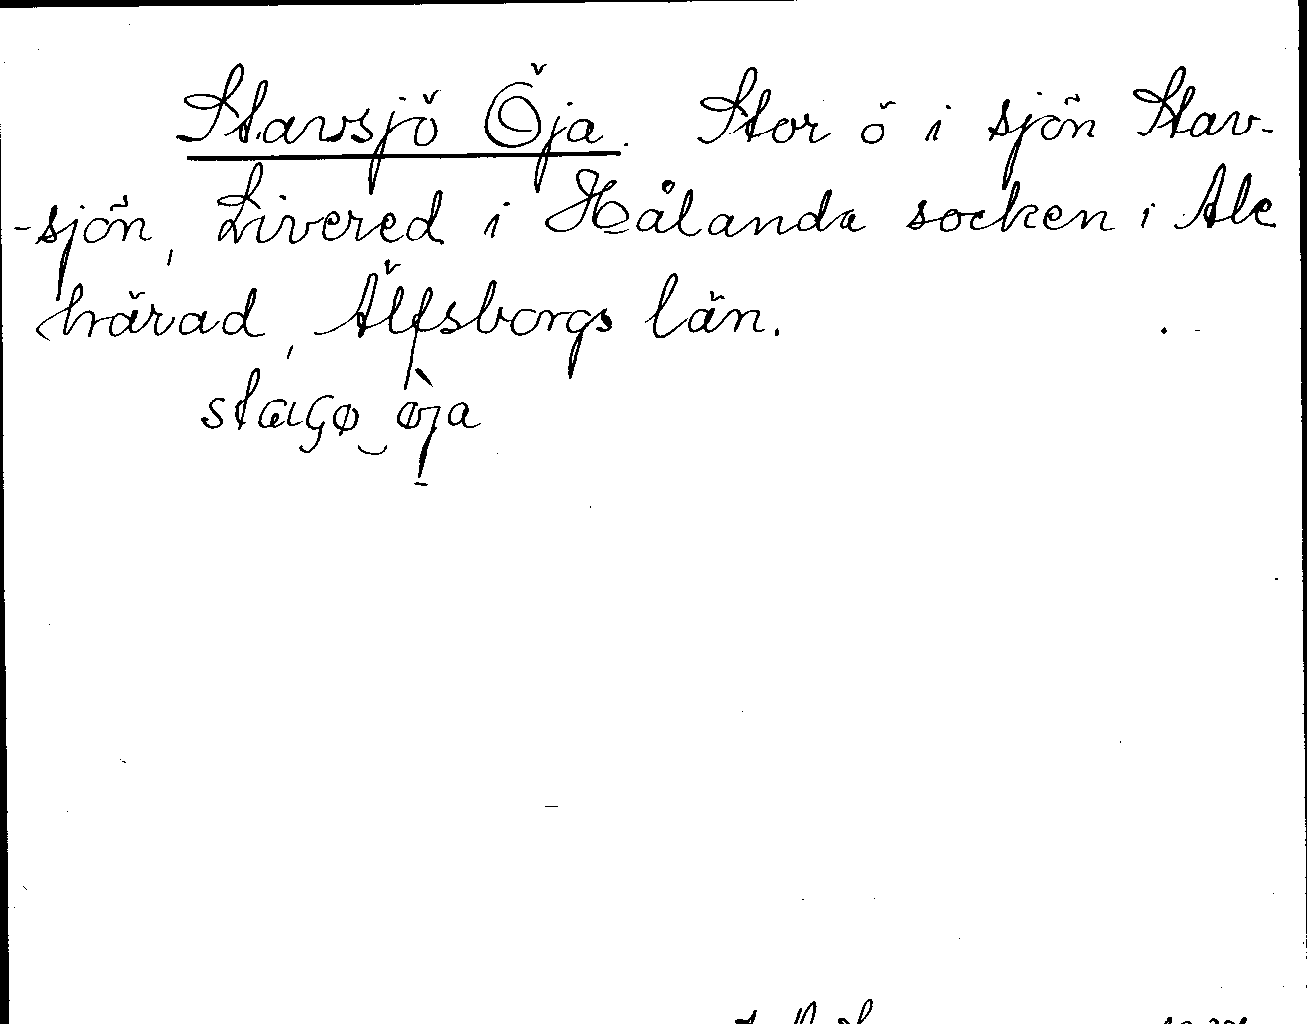 Stavsjö Öja. Stor ö i sjön Stav-
-sjön, Livered i Hålanda socken i Ale
härad, Älfsborgs län.